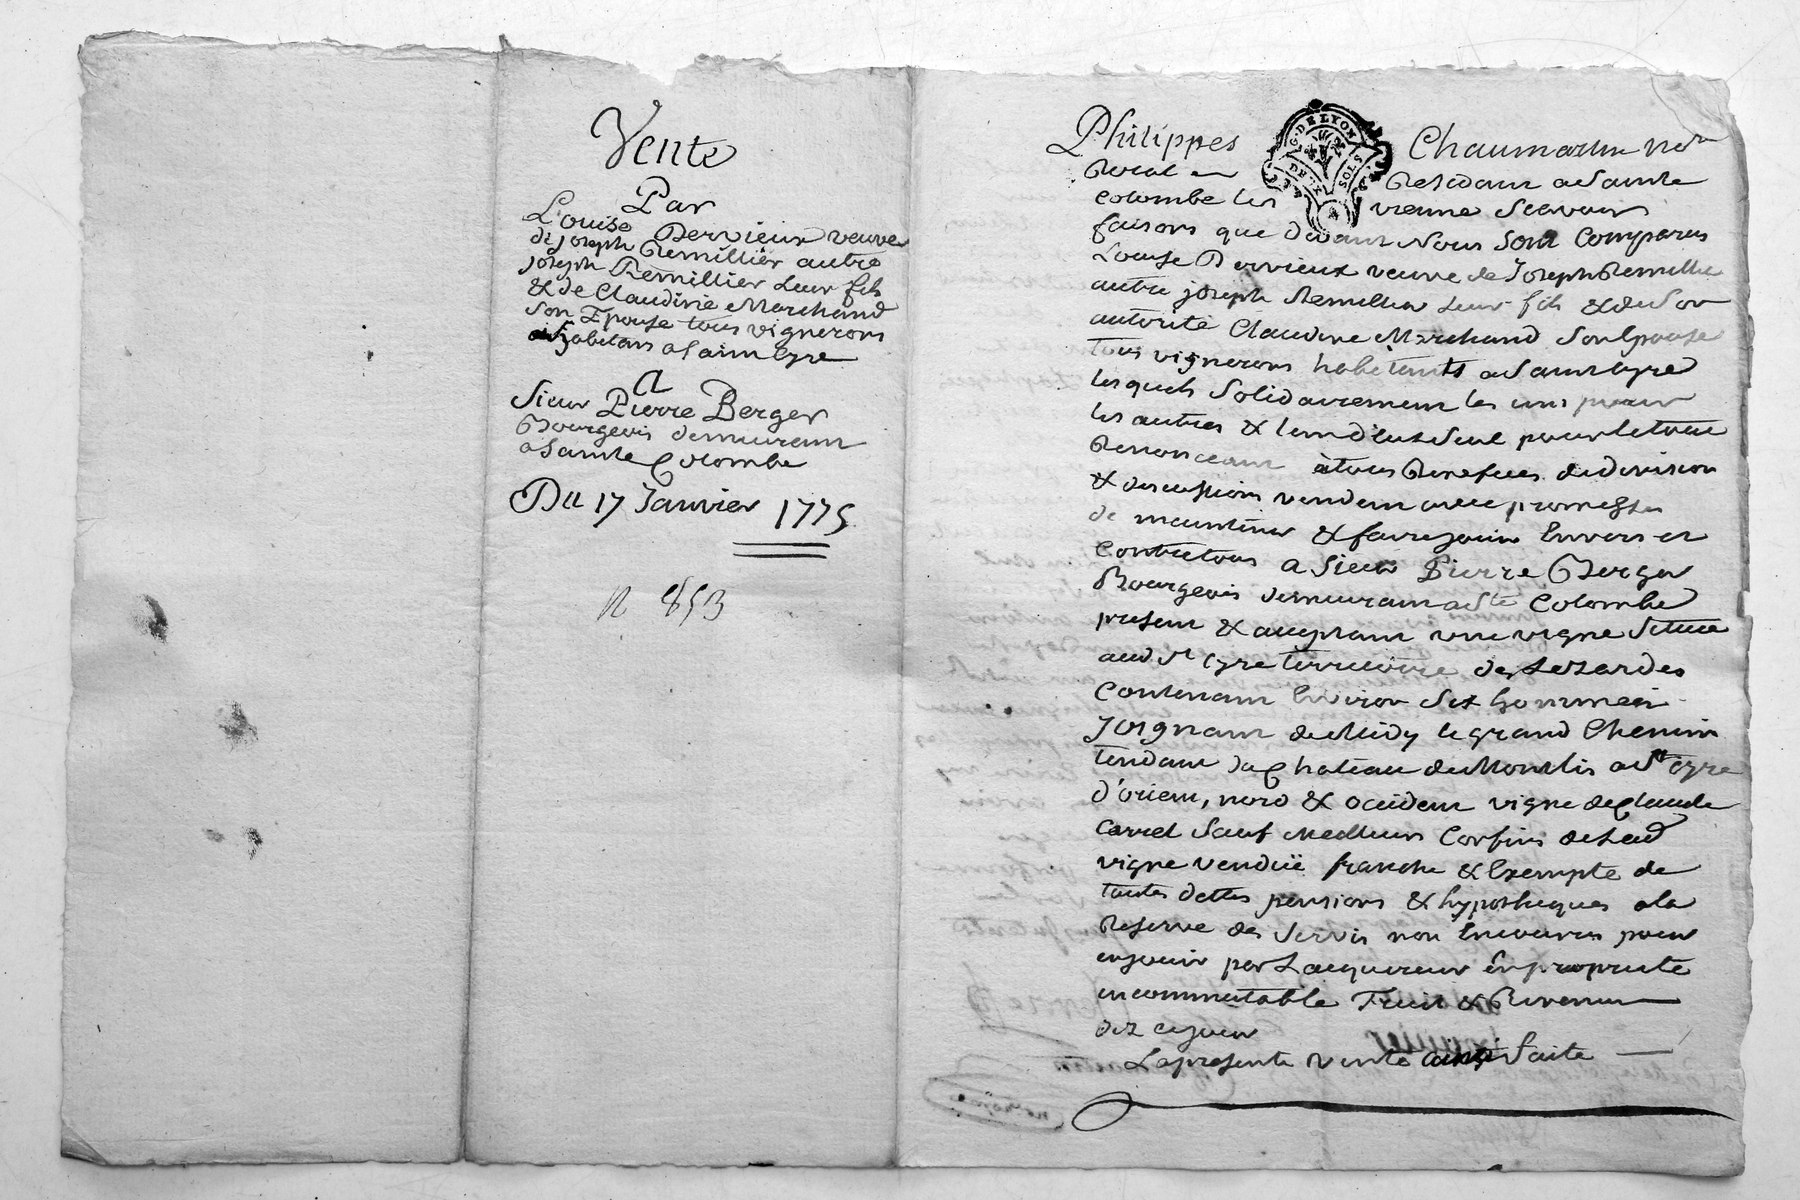 Vente
Par
Louise Dervieux veuve
de joseph Remillier autre
joseph Remillier Leur fils
& de Claudine Marchand
Son Epouse tous vignerons
habitans a Saint Cyre
A
Sieur Pierre Berger
Bourgeois demeurant
a Sainte Colombe
Du 17 Janvier 1775
n 853
Philippes Chaumartin No.re
Roial Residant a Sainte
Colombe les vienne Scavoir
faisons que devant Nous Sont Comparus
Louise Dervieux veuve de Joseph Remillier
autre joseph Remillier Leur fils & de Son
autorité Claudine Marchand Son Epouse
tous vignerons habitants a Saint Cyre
lesquels Solidairement les uns pour
les autres & l'un d'eux Seul pour le tout
Renonceant à tous Benefices de division
& discussion vendent avec promesse
de maintenir & faire jouir Envers et
Contre tous a Sieur Pierre Berger
Bourgeois demeurant a Ste Colombe
present & acceptant une vigne Situee
aud St Cyre territoire des Lezardes
Contenant Environ Six hommées
Joignant de Midy le grand Chemin
tendant du Chateau de Montlis a St Cyre
d'orient, nord & occident vigne de Claude
Carret Sauf Meilleurs Confins de Lad
vigne venduë franche & Exempte de
toutes dettes pensions & hypotheques a la
Reserve des Servis non Encourus pour
en jouir par Lacquereur En proprieté
incommutable Fruit & Revenu
dez cejour
La presente vente ainsy faite
G. DE LYON
DEUX SOLS
4